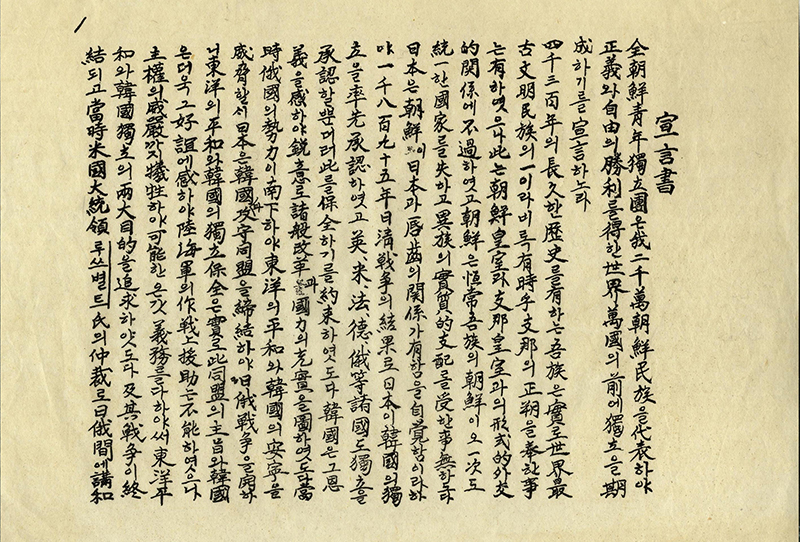 1
宣言書
全朝鮮靑年獨立團은我二千萬朝鮮民族을代表하야
正義와自由의勝利를得한世界萬國의前에獨立을期
成하기를宣言하노라
四千三百年의長久한歷史를有하는吾族은實로世界最
古文明民族의一이라비록有時乎支那의正朔을奉한事
는有하엿으나此는朝鮮皇室와支那皇室과의形式的外交
的關係에不過하엿고朝鮮은恒常吾族의朝鮮이오一次도
統一한國家를失하고異族의實質的支配를受한事無하도다
日本은朝鮮이日本과唇齒의關係가有함을自覺함이라하
야一千八百九十五年日清戰爭의結果로日本이韓國의獨
立을率先承認하엿고英、米、法、德、俄等諸國도獨立을
承認할뿐더러此를保全하기를約束하엿도다韓國은그恩
義을感하야銳意로諸般改革과國力의充實을圖하엿도다當
時俄國의勢力이南下하야東洋의平和와韓國의安寧을
威脅할새日本은韓國과攻守同盟을締結하야日俄戰爭을開하
니東洋의平和와韓國의獨立保全은實로此同盟의主旨와韓國
은더욱그好誼에感하야陸海軍의作戰上援助는不能하엿으나
主權의威嚴까지犧牲하야可能한온갓義務를다하야써東洋平
和와韓國獨立의兩大目的을追求하얏도다及其戰爭이終
結되고當時米國大統領루쓰벨트氏의仲裁로日俄間에講和